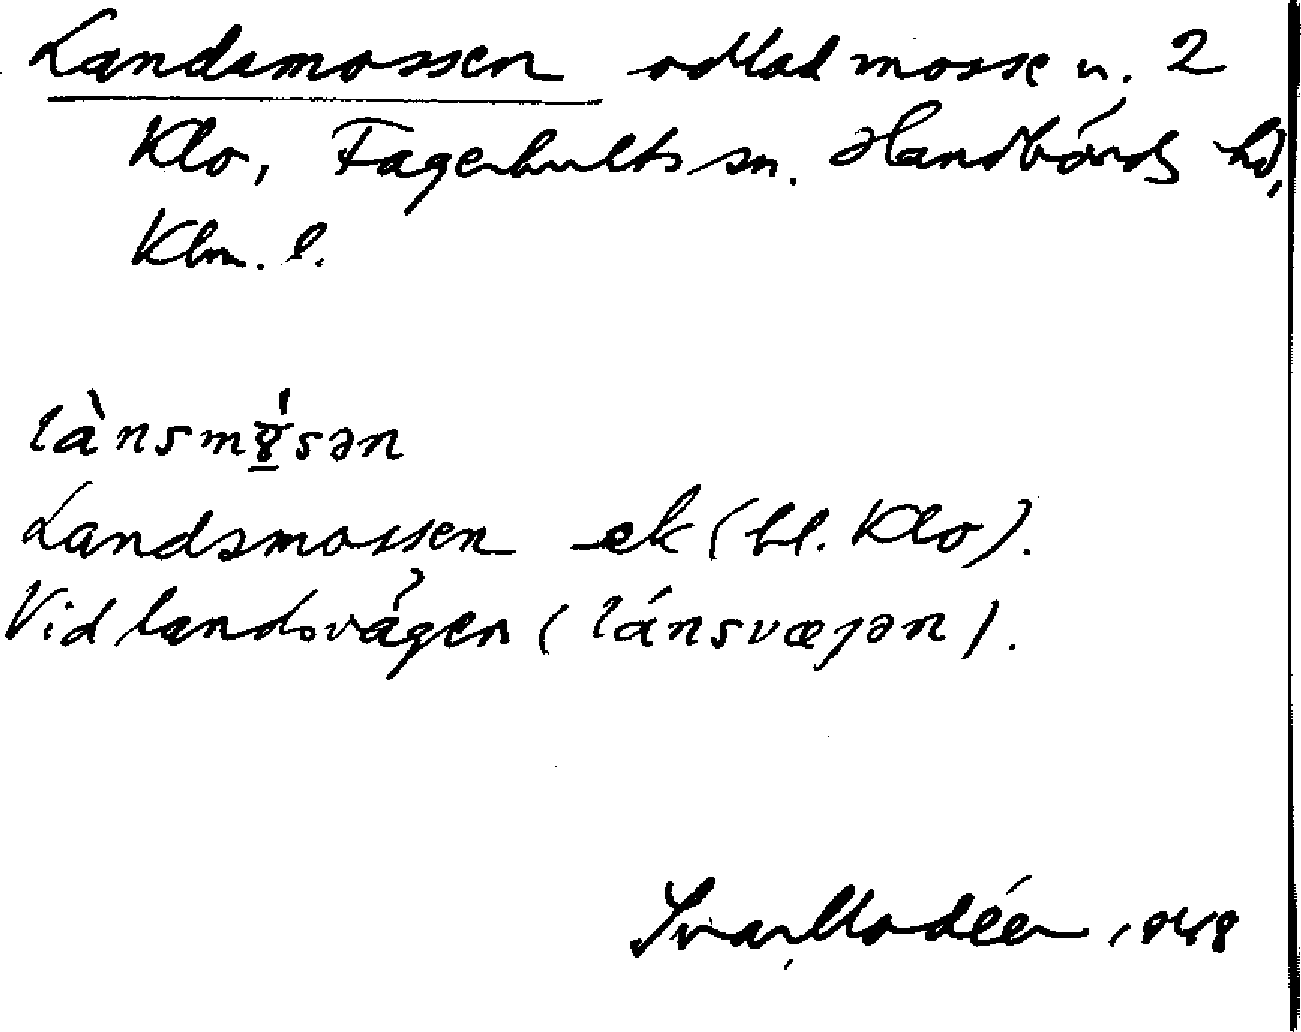 Landsmossen odlad mosse u. 2
Klo, Fagerhults sn. Handbörds hd,
Klm. l.
lànsmɣ̲́sən
Landsmossen ek (bl. Klo).
Vid landsvägen (lánsvæȷən).
Ivar Modéer 1948